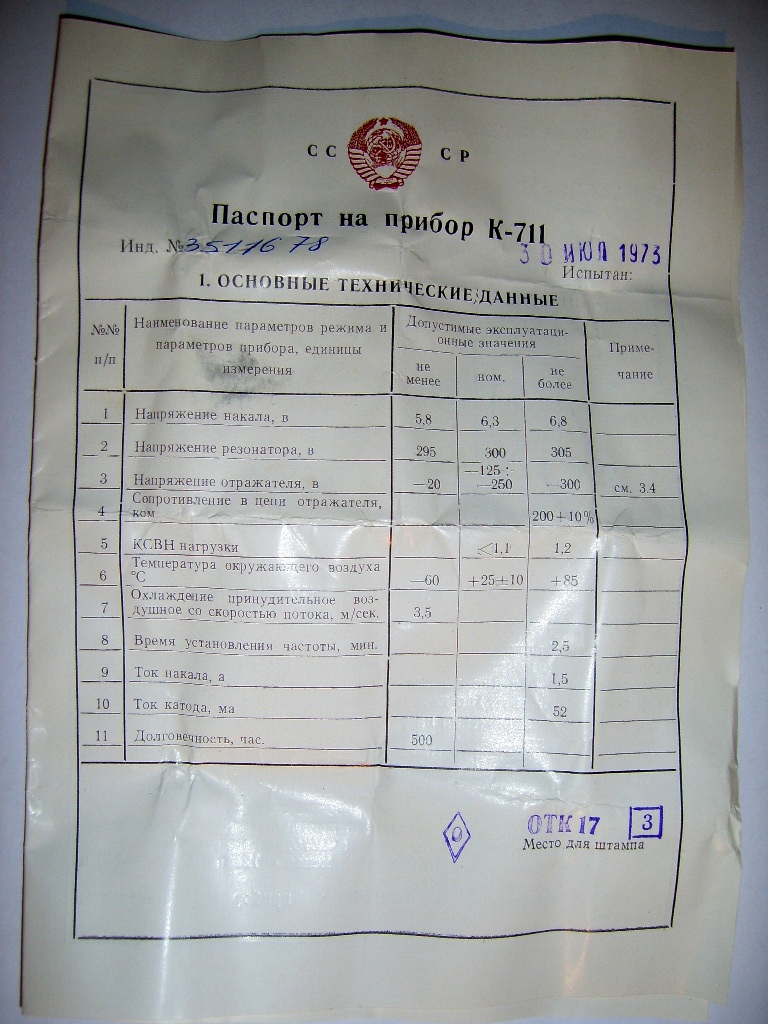 СС СР
Паспорт на прибор К-711
Инд. № 3511678
30 ИЮЛ 1973
Испытан:
1. ОСНОВНЫЕ ТЕХНИЧЕСКИЕ ДАННЫЕ
№№ п/п
Наименование параметров режима и
параметров прибора, единицы
измерения
Допустимые эксплуатаци-
онные значения
не менее
ном.
не более
Приме-
чание
1 Напряжение накала, в 5,8 6,3 6,8
2 Напряжение резонатора, в 295 300 305
3 Напряжение отражателя, в —20 —125 ÷ —250 —300 см. 3.4
4 Сопротивление в цепи отражателя,
ком 200+10%
5 КСВН нагрузки <1,1 1,2
6 Температура окружающего воздуха
°С —60 +25±10 +85
7 Охлаждение принудительное воз-
душное со скоростью потока, м/сек. 3,5
8 Время установления частоты, мин. 2,5
9 Ток накала, а 1,5
10 Ток катода, ма 52
11 Долговечность, час. 500
ОТК 17 3
Место для штампа